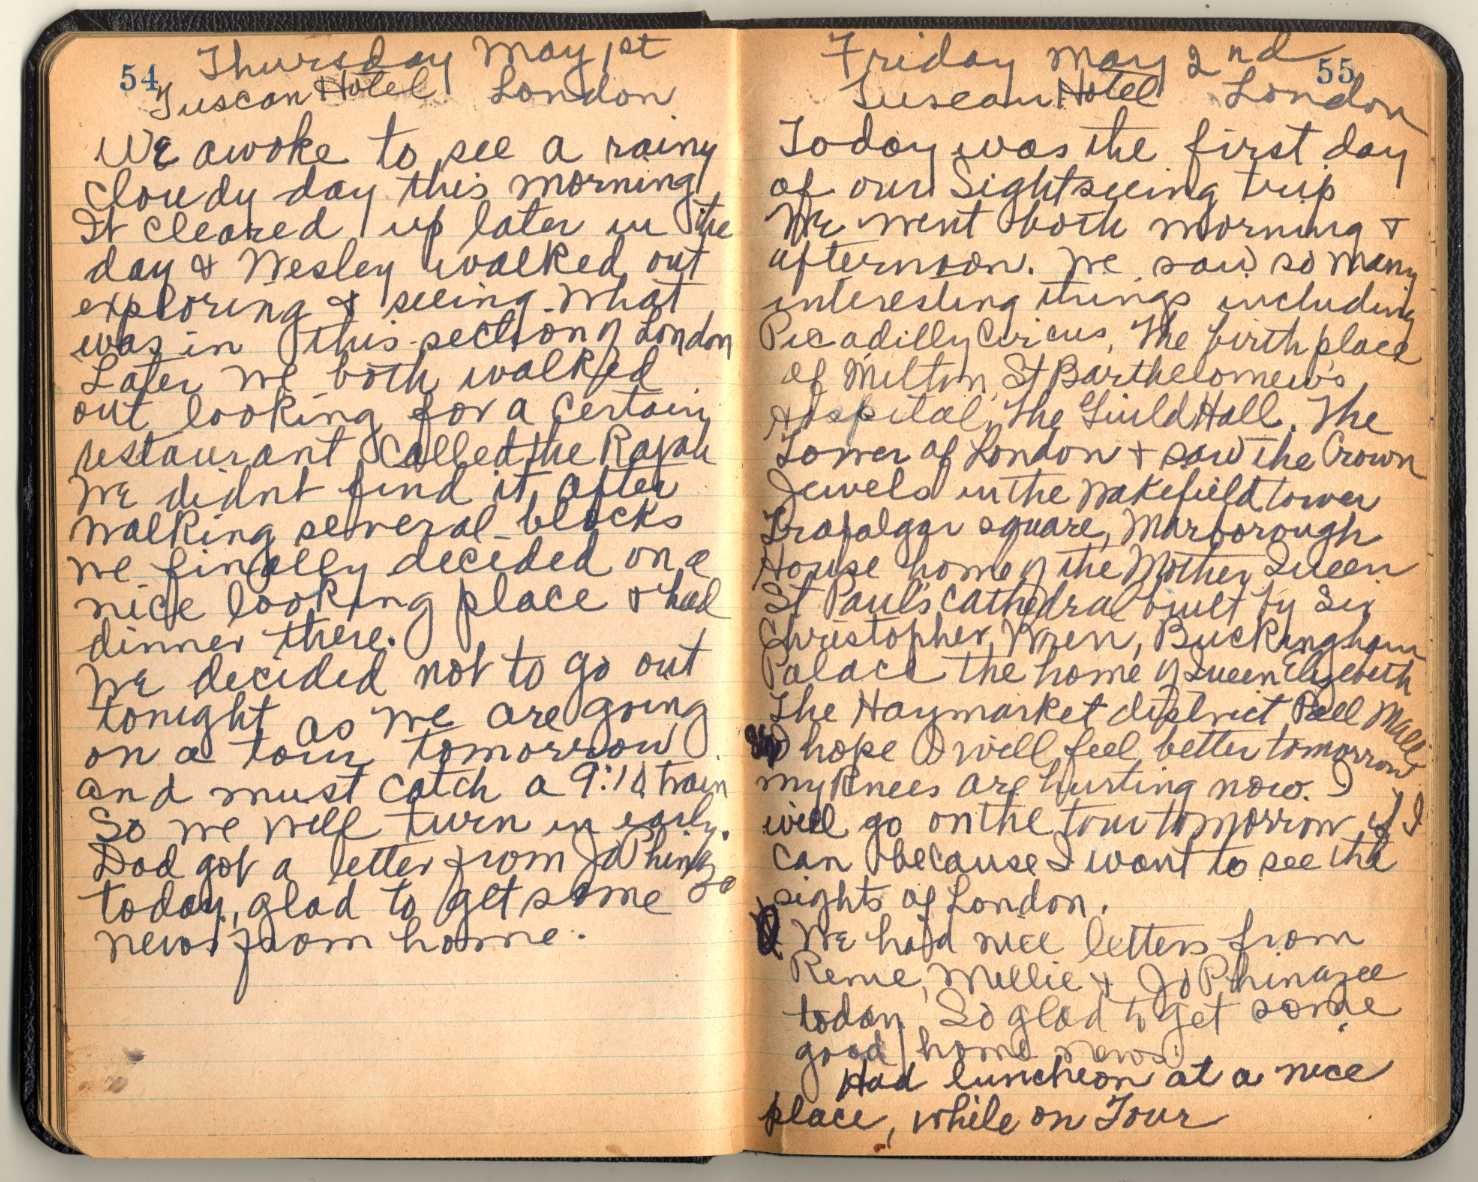 54
Thursday May 1st
Tuscan Hotel London
We awoke to see a rainy
cloudy day this morning
It cleared up later in the
day & Wesley walked out
exploring & seeing what
was in this section of London
Later we both walked
out looking for a certain
restaurant called the Rajah
We didnt find it, after
walking several blocks
we finally decided on a
nice looking place & had
dinner there.
We decided not to go out
tonight as we are going
on a tour tomorrow
and must catch a 9:10 train
So we will turn in early.
Dad got a letter from Jo Phinazee
today, glad to get some
news from home.
55
Friday May 2nd
Tuscan Hotel London
Today was the first day
of our Sightseeing trip
We went both morning &
afternoon. We saw so many
interesting things including
Picadilly Circus, The birth place
of Milton, St Bartholomew's
Hospital, The Guild Hall. The
Tower of London & saw the Crown
Jewels in the Wakefield tower
Trafalgar square, Marborough
House home of the Mother Queen
St Paul's Cathedral built by Sir
Christopher Wren, Buckingham
Palace the home of Queen Elizabeth
The Haymarket district, Pall Mall
I hope I will feel better tomorrow
my knees are hurting now. I
will go on the tour tomorrow if I
can because I want to see the
sights of London.
We had nice letters from
Rene, Mellie & Jo Phinazee
today, So glad to get some
good home news.
Had luncheon at a nice
place, while on Tour